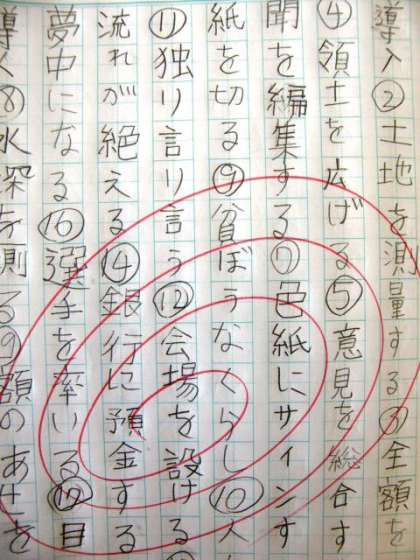 導入②土地を測量する③全額を
④領土を広げる⑤意見を総合す
聞を編集する⑦色紙にサインす
紙を切る⑨貧ぼうなくらし⑩人
⑪独り言り言う⑫会場を設ける
流れが絶える⑭銀行に預金する
夢中になる⑯選手を率いる⑰目
導く⑱水深を測る⑲額のあせを